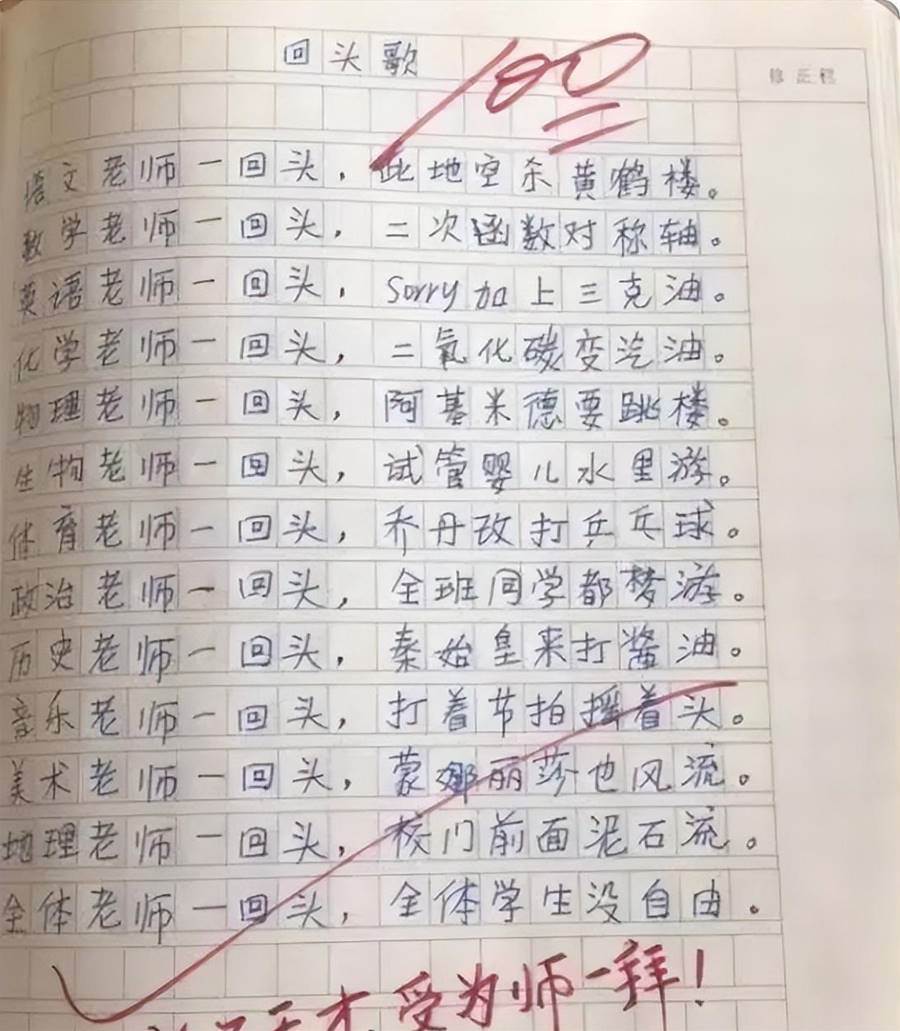 回头歌
100
修正栏
语文老师一回头，此地空杀黄鹤楼。
数学老师一回头，二次函数对称轴。
英语老师一回头，Sorry加上三克油。
化学老师一回头，二氧化碳变汽油。
物理老师一回头，阿基米德要跳楼。
生物老师一回头，试管婴儿水里游。
体育老师一回头，乔丹改打乒乓球。
政治老师一回头，全班同学都梦游。
历史老师一回头，秦始皇来打酱油。
音乐老师一回头，打着节拍摇着头。
美术老师一回头，蒙娜丽莎也风流。
地理老师一回头，校门前面泥石流。
全体老师一回头，全体学生没自由。
天才，受为师一拜！